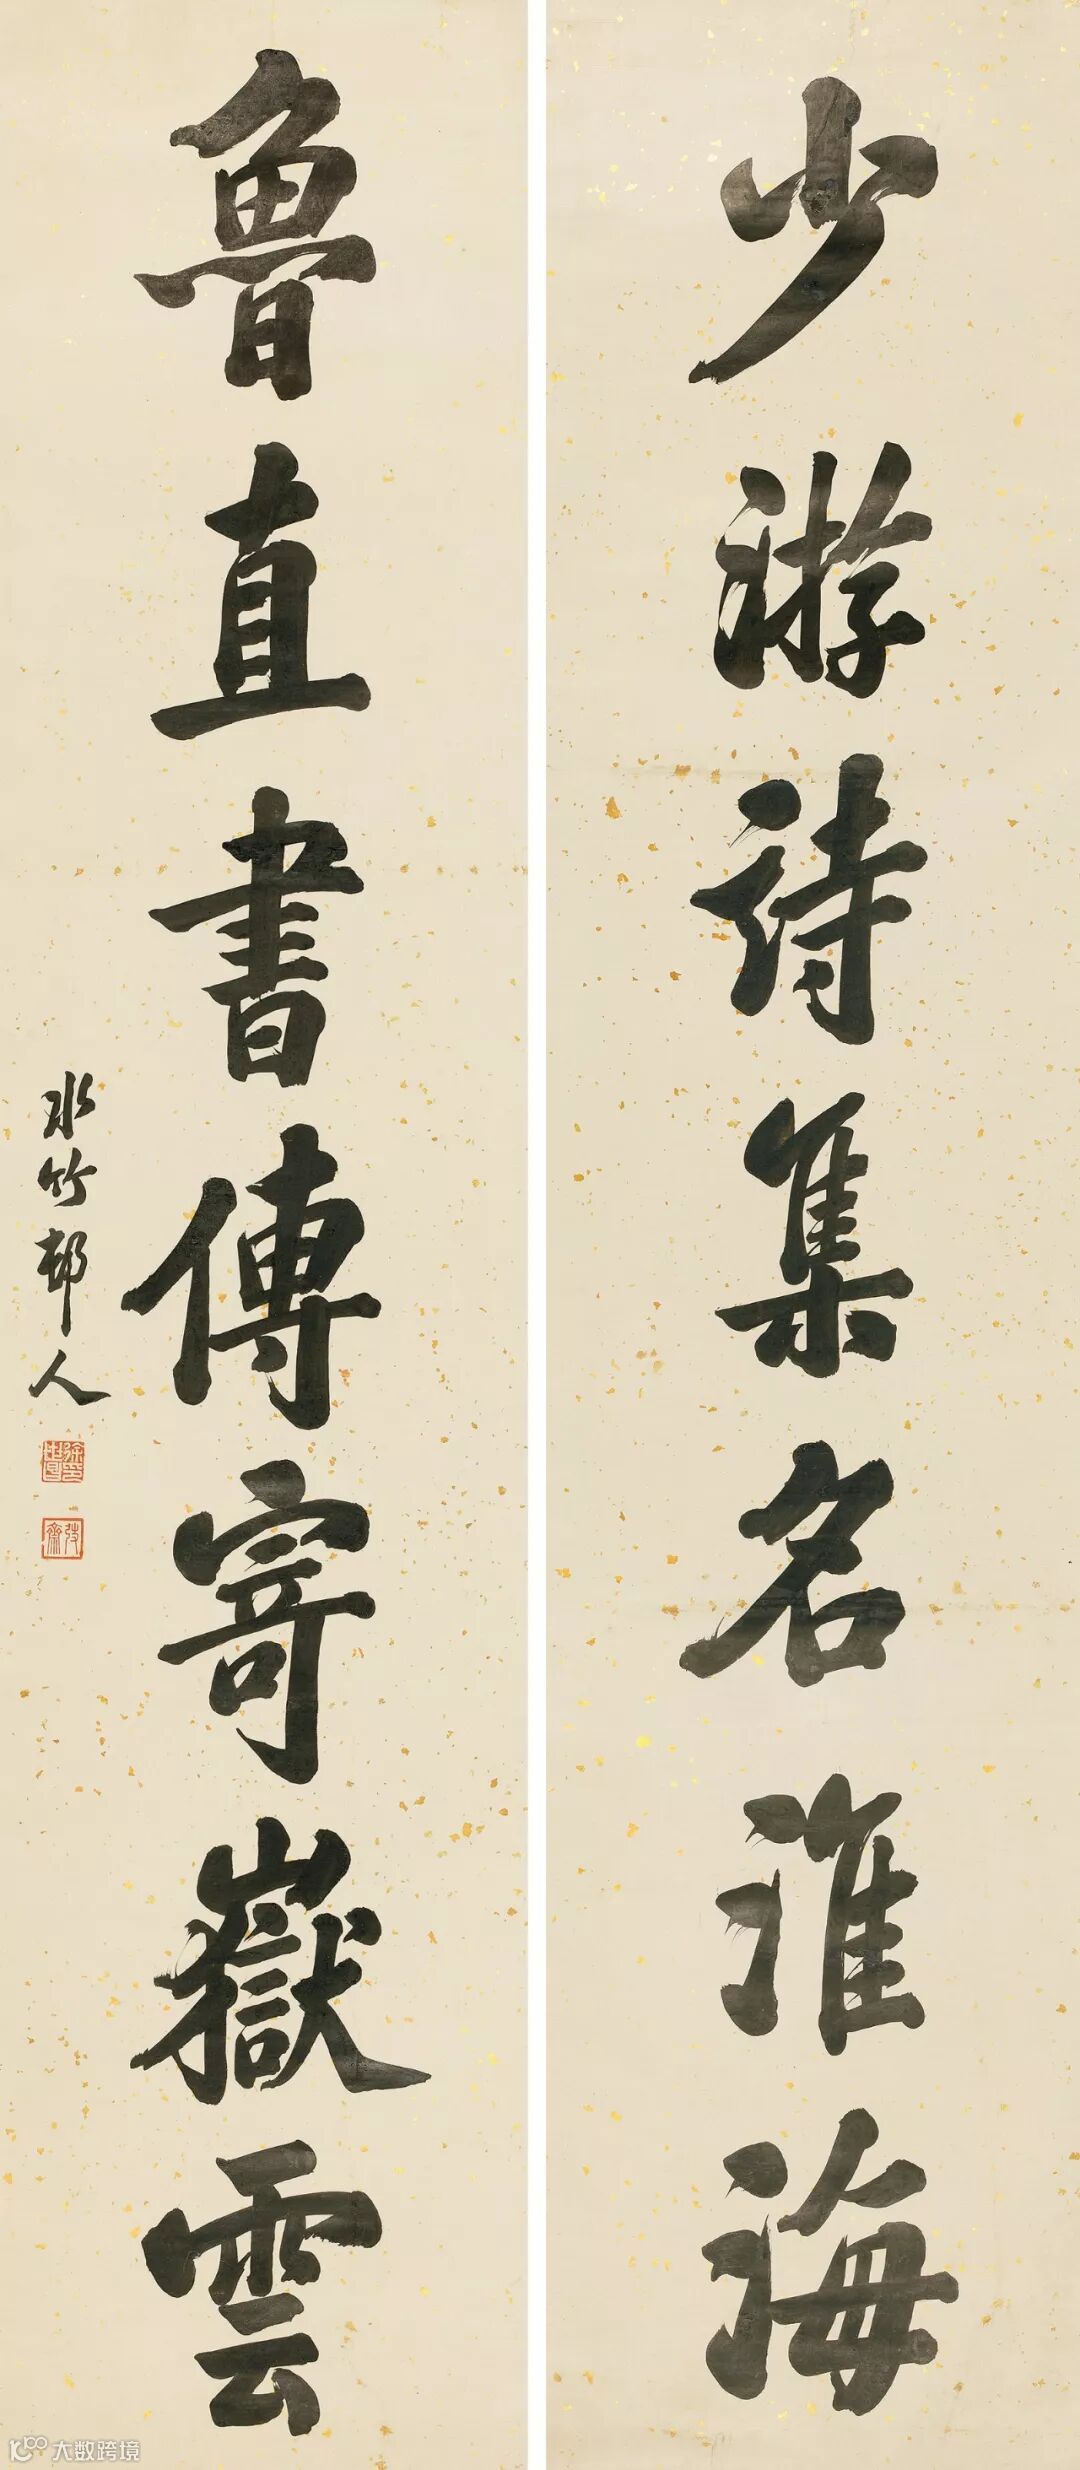 少游詩集名淮海
魯直書傳寄嶽雲
水竹邨人
徐世昌印
弢齋
大数跨境